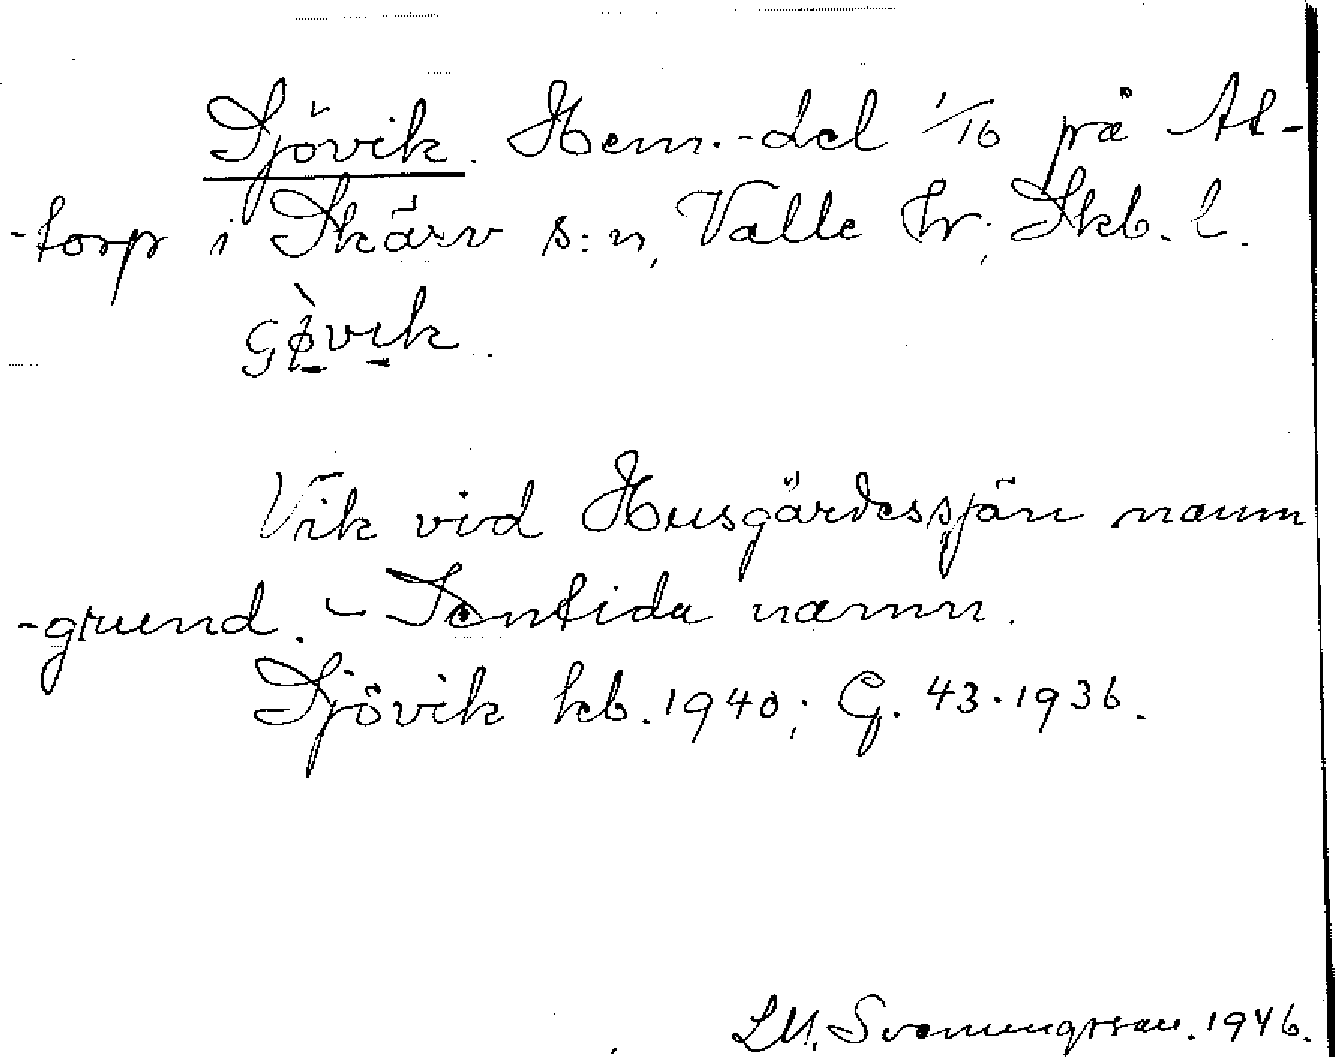 Sjövik. Hem.-del 1/16 på Al-
-torp i Skärv s:n, Valle hr; Skb. l.
Vik vid Husgärdessjön namn
-grund. - Sentida namn.
Sjövik kb. 1940; G. 43. 1936.
LM. Svenungsson. 1946.